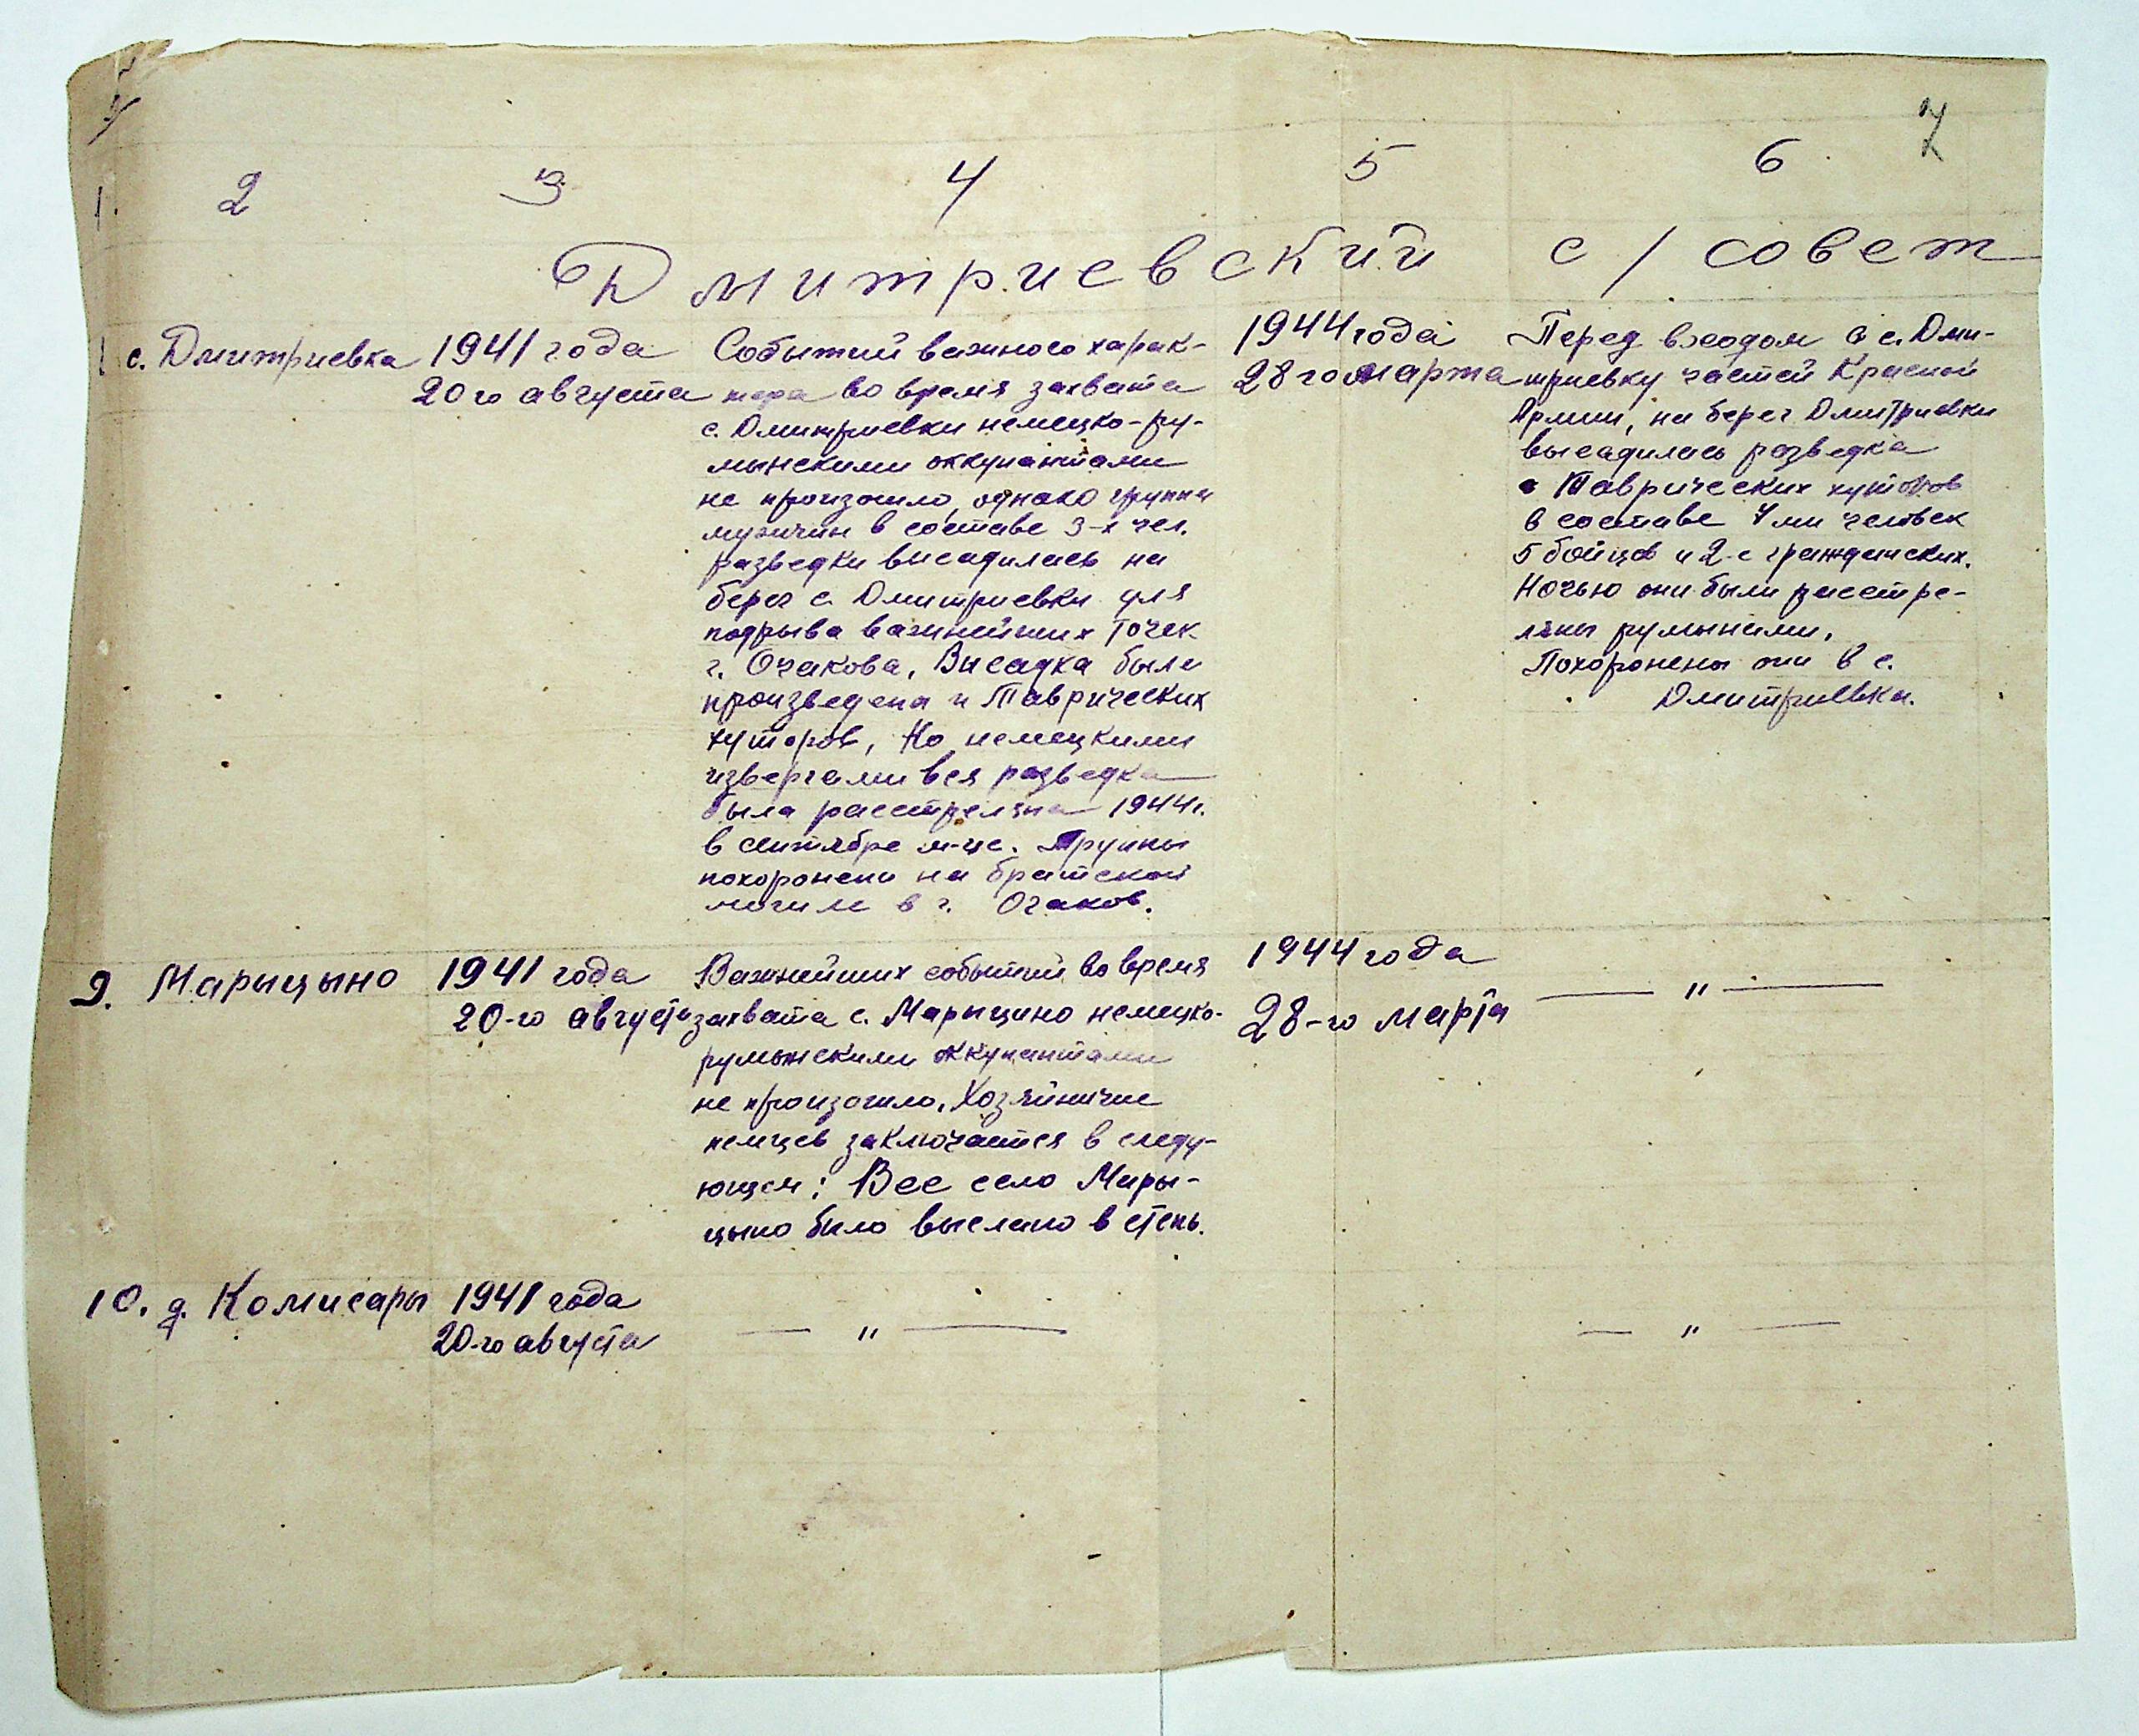 7
1. 2 3 4 5 6
Дмитриевский с/совет
с. Дмитриевка
1941 года
20 го августа
Событий важного харак-
тера во время захвата
с. Дмитриевки немецко-ру-
мынскими оккупантами
не произошло, однако группа
мужчин в составе 3-х чел.
разведки высадилась на
берег с. Дмитриевки для
подрыва важнейших точек
г. Очакова, Висадка были
произведена и Таврических
хуторов, Но немецкими
извергами вся разведка
была расстреляна 1944 г.
в сентябре м-це. Трупы
похоронени на братской
могиле в г. Очаков.
1944 года
28 го марта
Перед входом в с. Дми-
триевку частей Красной
Армии, на берег Дмитриевки
высадилась разведка
с Таврических хуторов
в составе 7 ми человек
5 бойцов и 2-е гражданских.
Ночью они были расстре-
ляны румынами.
Похоронены они в с.
Дмитриевка.
9. Марыцыно
1941 года
20-го августа
Важнейших событий во время
захвата с. Марыцино немецко-
румынскими оккупантами
не произошло. Хозяйничие
немцев заключается в следу-
ющем: Все село Мары-
цыно было выслано в степь.
1944 года
28-го марта
— " —
10. д. Комисары
1941 года
20-го августа
— " —
— " —